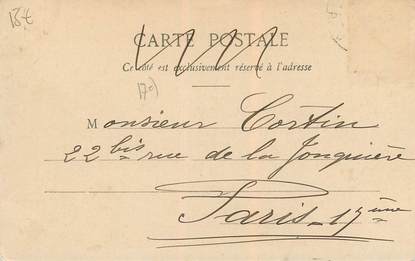 15€
CARTE POSTALE
Ce côté est exclusivement réservé à l'adresse
Monsieur Cortin
22 bis rue de la Jonquière
Paris_17ème